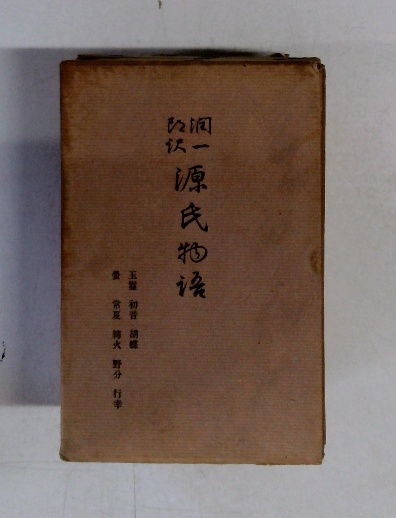 潤一
郎訳
源氏物語
玉鬘 初音 胡蝶
螢 常夏 篝火 野分 行幸